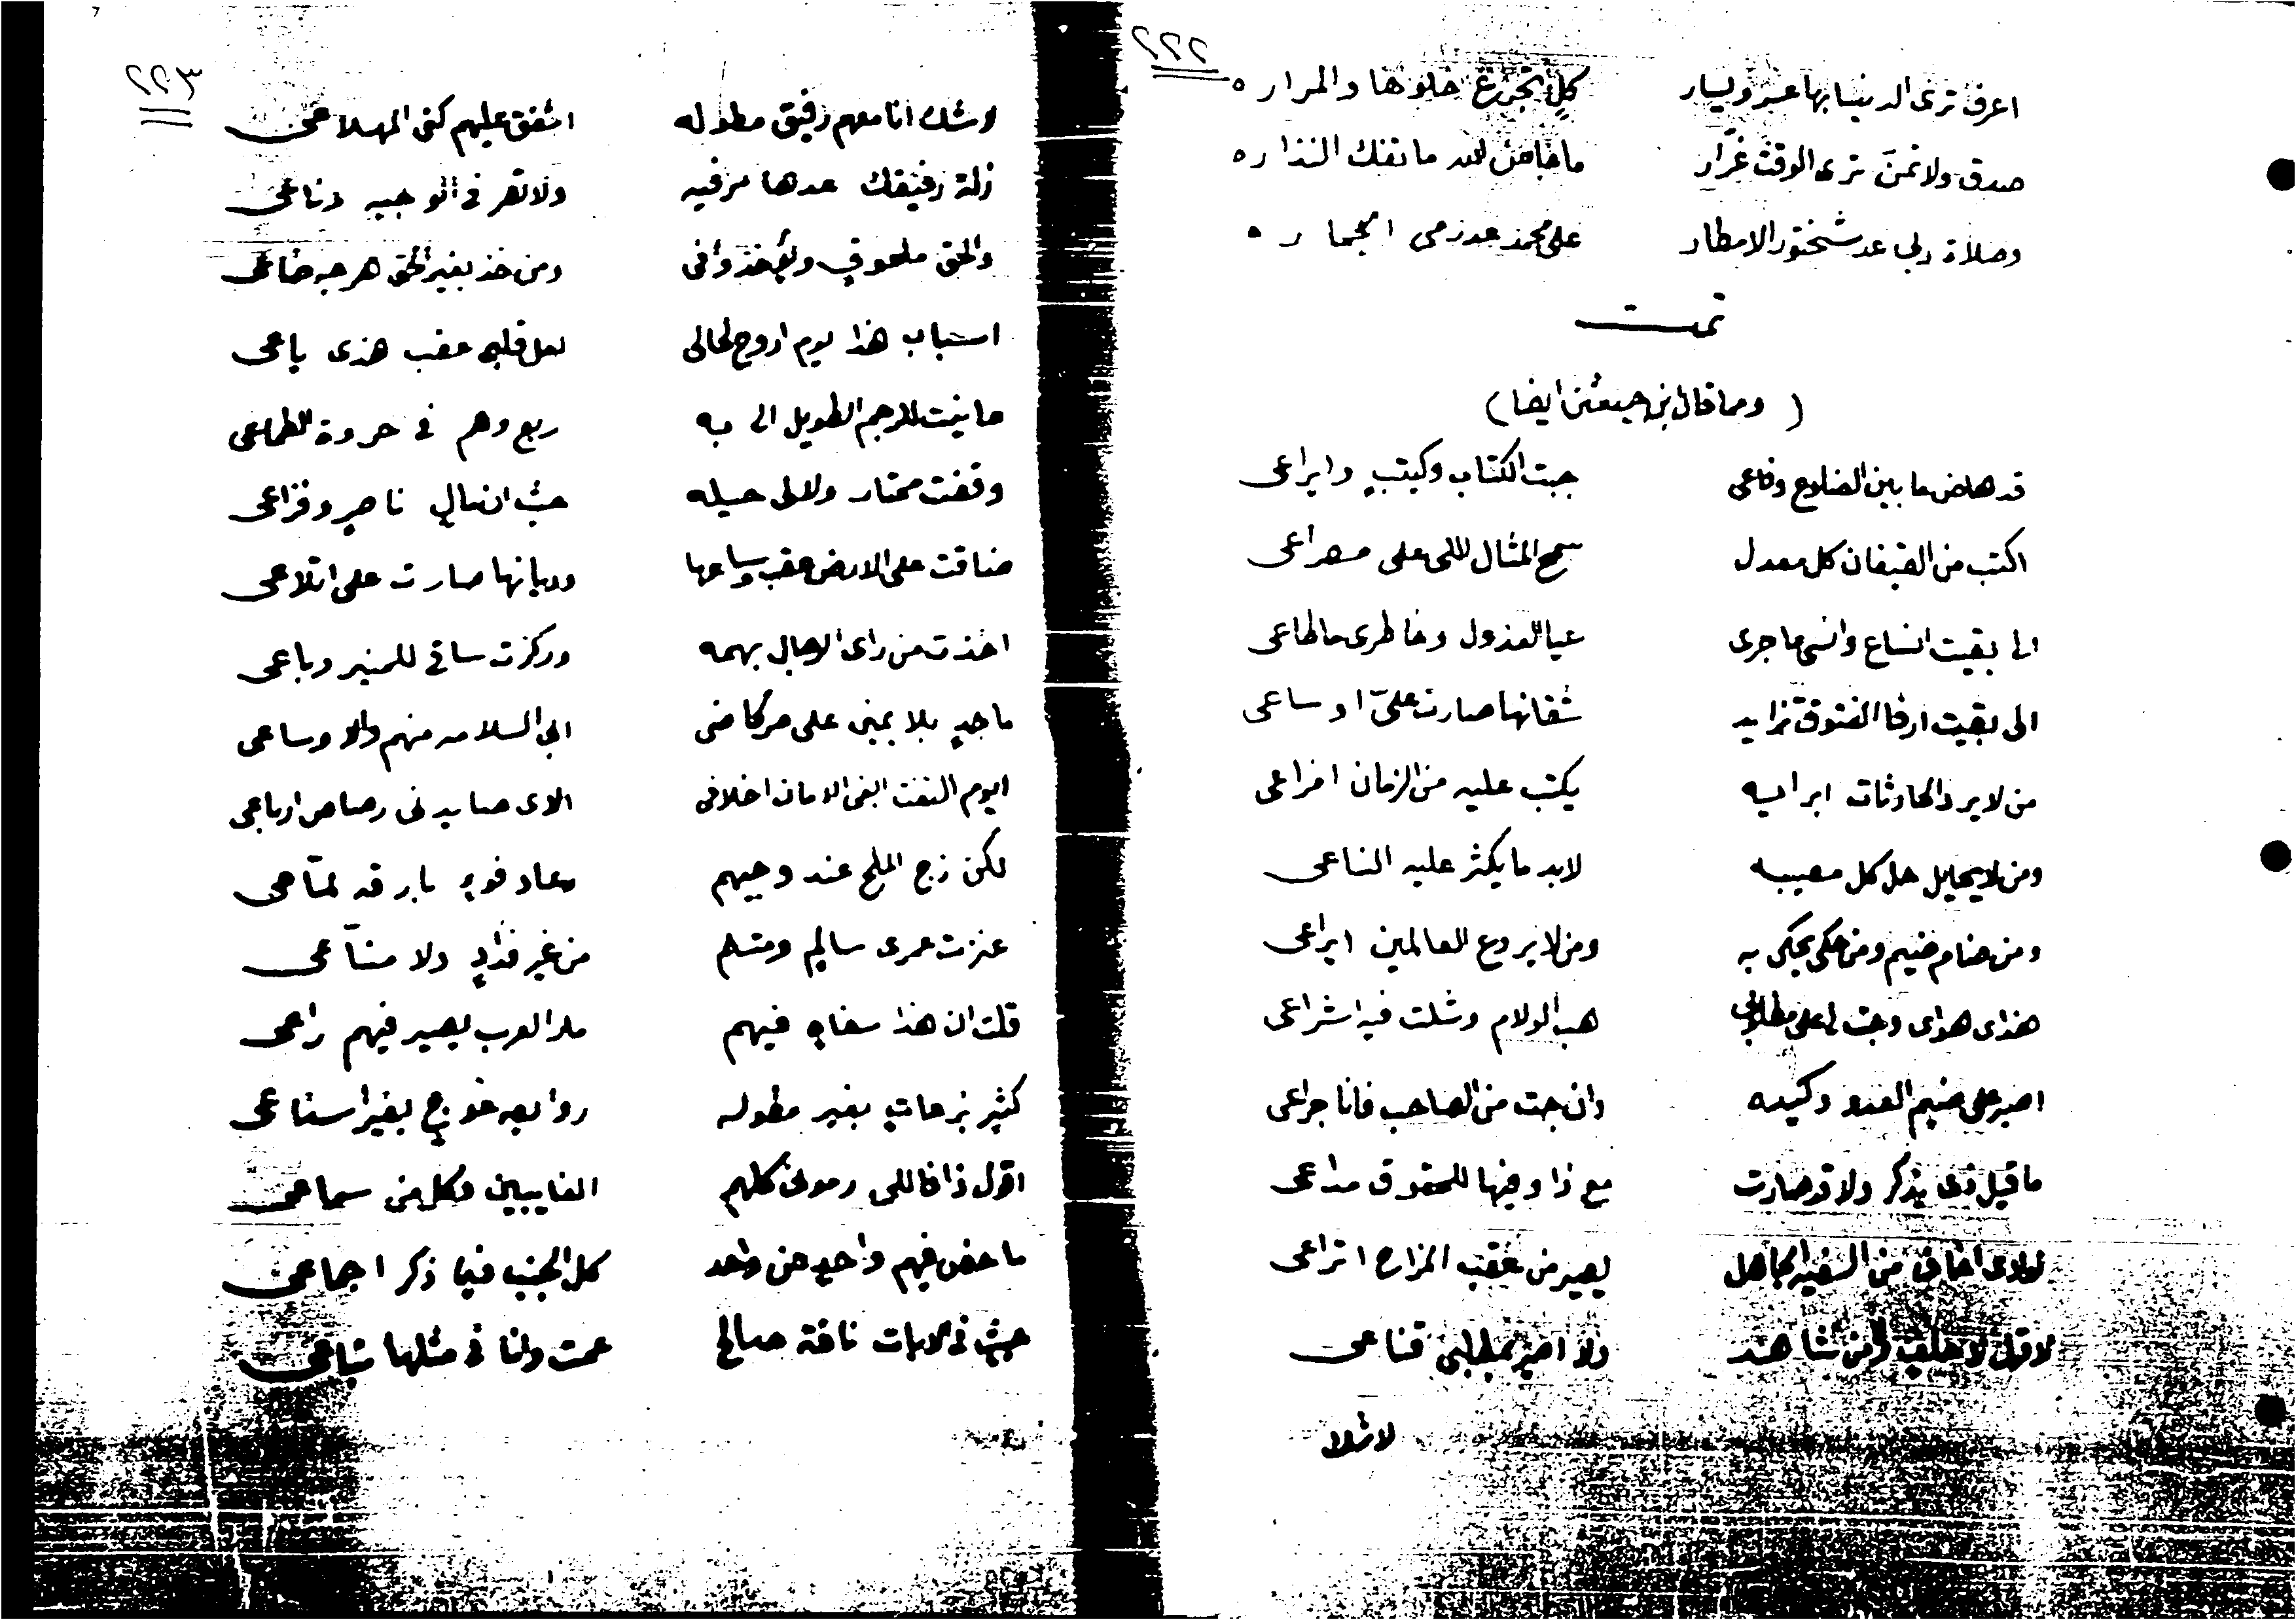 ٢٢٢
اعرف ترى الدنيا بها عسر ويسار كل تجرع حلوها والمراره
صدق ولا تمن ترى الوقت غرار ما من لله ما تفك النذاره
وصلاة ربي عد شختور الامطار على محمد عد رمى الجماره
تمت
(ومما قال بن جعيثن ايضا)
قد هاض ما بين الضلوع وفاعى جبت الكتاب وكيتبٍ وايراعى
اكتب من القيفان كل معدل سمح المثال اللى على مصراعى
الى بقيت انساع وانسى ما جرى عيا العذول وخاطرى ما طاعى
الى بقيت ارفا الفتوق تزايد شقانها صارت علىّ اوساعى
من لا يرد الحادثات ابرايه يكتب عليه من الزمان افراعى
ومن لا يحايل حل كل مصيبه لابد ما يكثر عليه الناعى
ومن ضام ضيم ومن حكى يحكى به ومن لا يروع للعالمين ايراعى
هذاى هواى وجت لى على مطلابى هب الولام وشلت فيه اشراعى
اصبر على ضيم العدو وكيده وان جت من الصاحب فانا جراعى
ما قيل ذى يذكر ولا قد صارت مع ذا وفيها للحقوق مداعى
لولاى اخاف من السفيه الجاهل يصير من عقب المزارح اتراعى
لاقول لا من شاهد ولا قناعى
لا شك
٢٢٣
لا شك انا معهم رفيق مطوله اشفق عليهم كنى المهلاعى
زلة رفيقك عدها مرفيه ولا تقر فى الوجيه دناعى
والحق ملحوقٍ ويؤخذ وافى ومن خذ بغير الحق هرجه ضاعى
اسباب هذا يوم اروح لخالى لعل قلبى عقب هذى ياعى
ما نيت للرجم الطويل الى به ربع وهم فى حروة الطماعى
وقفت محتار ولا لى حيله حيث ان مالى ناصرٍ وفزاعى
ضاقت على الارض عقب وساعها وديانها صارت على اتلاعى
اخذت من راى الرجال بهمه وركزت ساقى للمنير وباعى
ما جيٍ بلا يمنى على مركاضى ابى السلامه منهم والاوساعى
ايوم التفت ابغى الامان اخلافى الاى صايدنى رصاص ارباعى
لكن زج الملح عند وجيهم رعاد فوقه بارقه لمّاعى
عزرت عمرى سالمٍ ومسلم من غير فذاذٍ ولا منّاعى
قلت ان هذا سفاهٍ فيهم ملا العرب يصير فيهم راعى
كثيرٍ نزعاتٍ بغير مطوله روابعه عوجٍ بغير اسناعى
اقول ذا فاللى رمونى كلهم الغايبين وكل من سماعى
ما خص فيهم واحدٍ من واحد كل الجنب فيما ذكر اجماعى
حيث فى الايات ناقة صالح عمت وانا فى مثلها تباعى